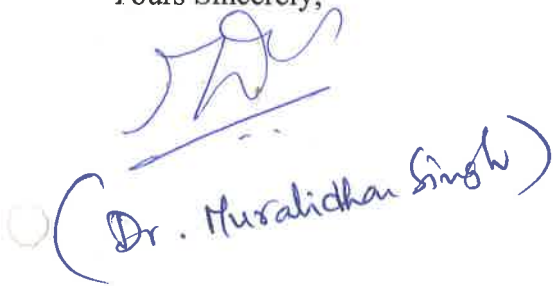 Yours Sincerely,
(Dr. Muralidhar Singh)